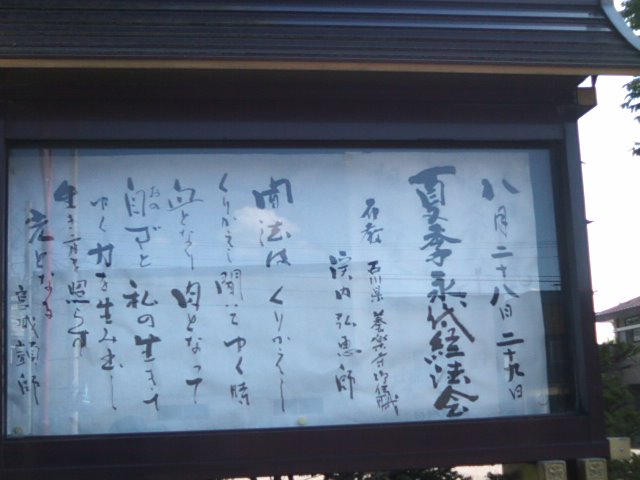 八月二十八日二十九日
夏季永代経法会
布教 石川県
内弘恵師
聞法は くりかえし
くりかえし聞いてゆく時
血となり肉となって
自ずと私の生きて
おの
ゆく力を生み出し
生き方を照らす
光となる
宮城顗師